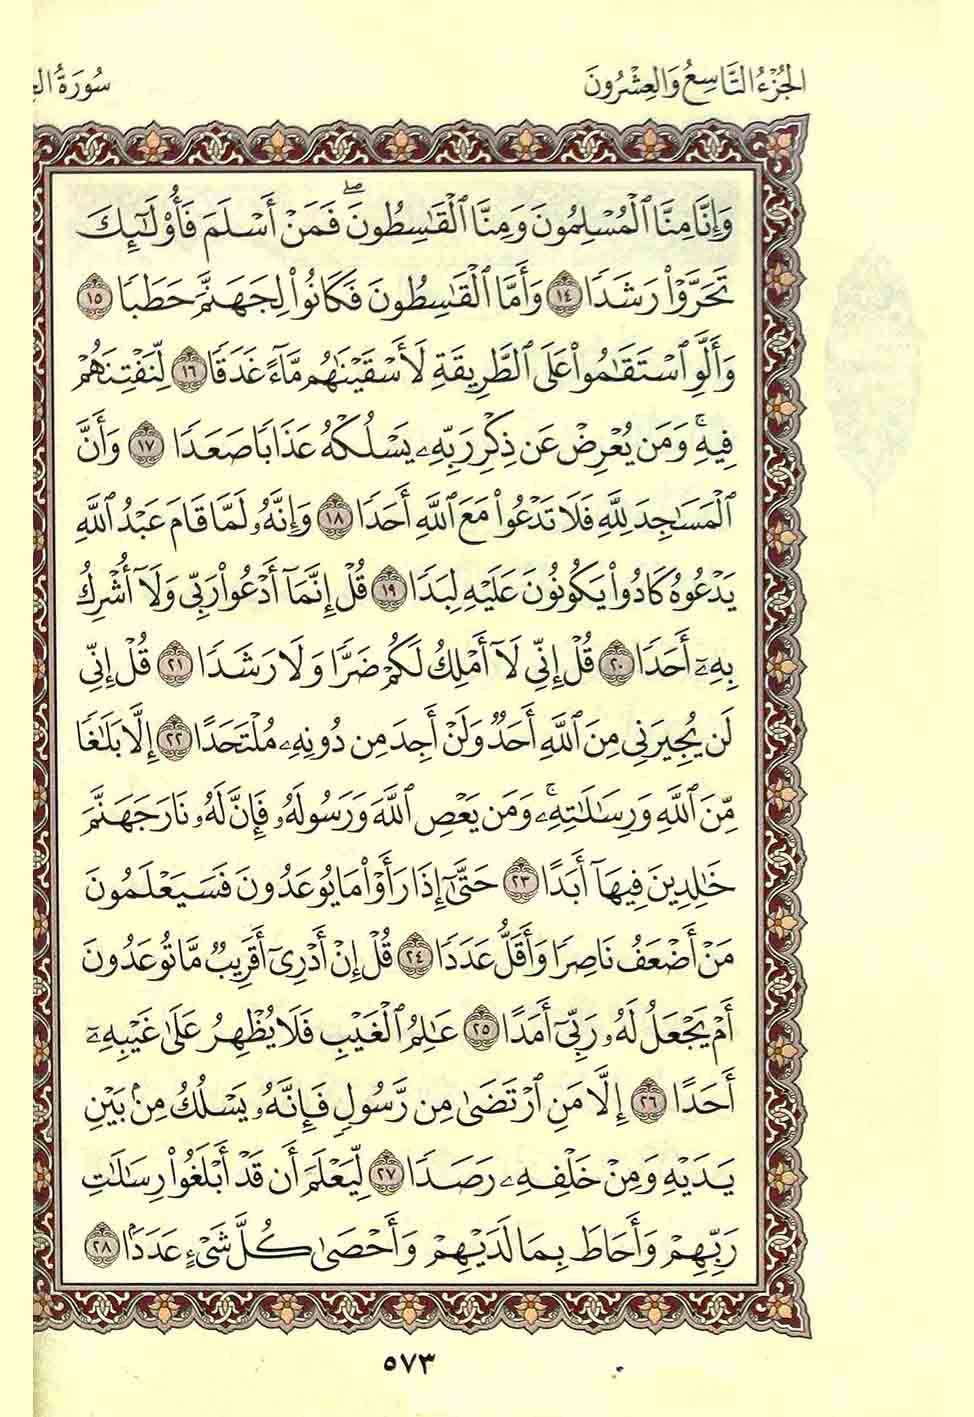 الجُزْءُ التَّاسِعُ وَالعِشْرُونَ
سُورَةُ
وَأَنَّا مِنَّا ٱلْمُسْلِمُونَ وَمِنَّا ٱلْقَٰسِطُونَۖ فَمَنْ أَسْلَمَ فَأُو۟لَٰٓئِكَ
تَحَرَّوْا۟ رَشَدًا ١٤ وَأَمَّا ٱلْقَٰسِطُونَ فَكَانُوا۟ لِجَهَنَّمَ حَطَبًا ١٥
وَأَلَّوِ ٱسْتَقَٰمُوا۟ عَلَى ٱلطَّرِيقَةِ لَأَسْقَيْنَٰهُم مَّآءً غَدَقًا ١٦ لِّنَفْتِنَهُمْ
فِيهِۚ وَمَن يُعْرِضْ عَن ذِكْرِ رَبِّهِۦ يَسْلُكْهُ عَذَابًا صَعَدًا ١٧ وَأَنَّ
ٱلْمَسَٰجِدَ لِلَّهِ فَلَا تَدْعُوا۟ مَعَ ٱللَّهِ أَحَدًا ١٨ وَإِنَّهُۥ لَمَّا قَامَ عَبْدُ ٱللَّهِ
يَدْعُوهُ كَادُوا۟ يَكُونُونَ عَلَيْهِ لِبَدًا ١٩ قُلْ إِنَّمَآ أَدْعُوا۟ رَبِّى وَلَآ أُشْرِكُ
بِهِۦٓ أَحَدًا ٢٠ قُلْ إِنِّى لَآ أَمْلِكُ لَكُمْ ضَرًّا وَلَا رَشَدًا ٢١ قُلْ إِنِّى
لَن يُجِيرَنِى مِنَ ٱللَّهِ أَحَدٌ وَلَنْ أَجِدَ مِن دُونِهِۦ مُلْتَحَدًا ٢٢ إِلَّا بَلَٰغًا
مِّنَ ٱللَّهِ وَرِسَٰلَٰتِهِۦۚ وَمَن يَعْصِ ٱللَّهَ وَرَسُولَهُۥ فَإِنَّ لَهُۥ نَارَ جَهَنَّمَ
خَٰلِدِينَ فِيهَآ أَبَدًا ٢٣ حَتَّىٰٓ إِذَا رَأَوْا۟ مَا يُوعَدُونَ فَسَيَعْلَمُونَ
مَنْ أَضْعَفُ نَاصِرًا وَأَقَلُّ عَدَدًا ٢٤ قُلْ إِنْ أَدْرِىٓ أَقَرِيبٌ مَّا تُوعَدُونَ
أَمْ يَجْعَلُ لَهُۥ رَبِّىٓ أَمَدًا ٢٥ عَٰلِمُ ٱلْغَيْبِ فَلَا يُظْهِرُ عَلَىٰ غَيْبِهِۦٓ
أَحَدًا ٢٦ إِلَّا مَنِ ٱرْتَضَىٰ مِن رَّسُولٍ فَإِنَّهُۥ يَسْلُكُ مِنۢ بَيْنِ
يَدَيْهِ وَمِنْ خَلْفِهِۦ رَصَدًا ٢٧ لِّيَعْلَمَ أَن قَدْ أَبْلَغُوا۟ رِسَٰلَٰتِ
رَبِّهِمْ وَأَحَاطَ بِمَا لَدَيْهِمْ وَأَحْصَىٰ كُلَّ شَىْءٍ عَدَدًۢا ٢٨
٥٧٣